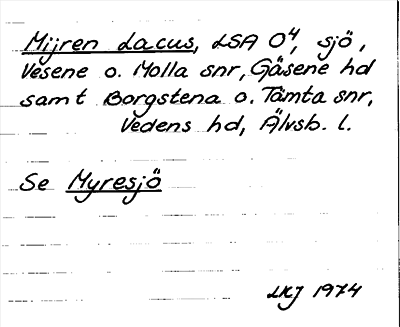 Mijren Lacus, LSA O⁴, sjö,
Vesene o. Molla snr, Gäsene hd
samt Borgstena o. Tämta snr,
Vedens hd, Älvsb. l.
Se Myresjö
LKJ 1974